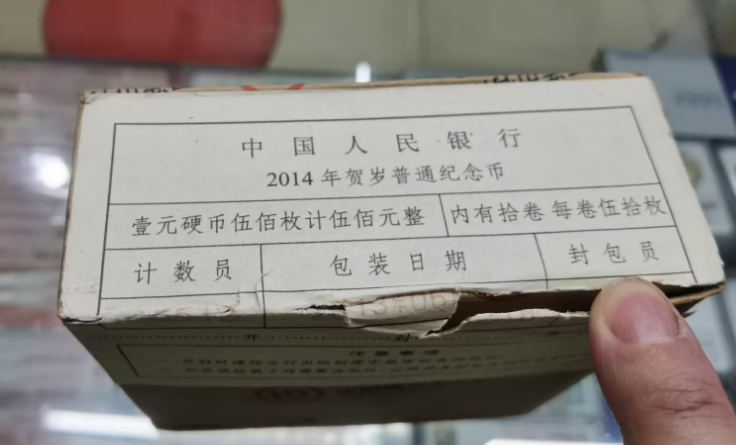 中国人民银行
2014年贺岁普通纪念币
壹元硬币伍佰枚计伍佰元整 内有拾卷 每卷伍拾枚
计数员 包装日期 封包员
开 封
注意事项